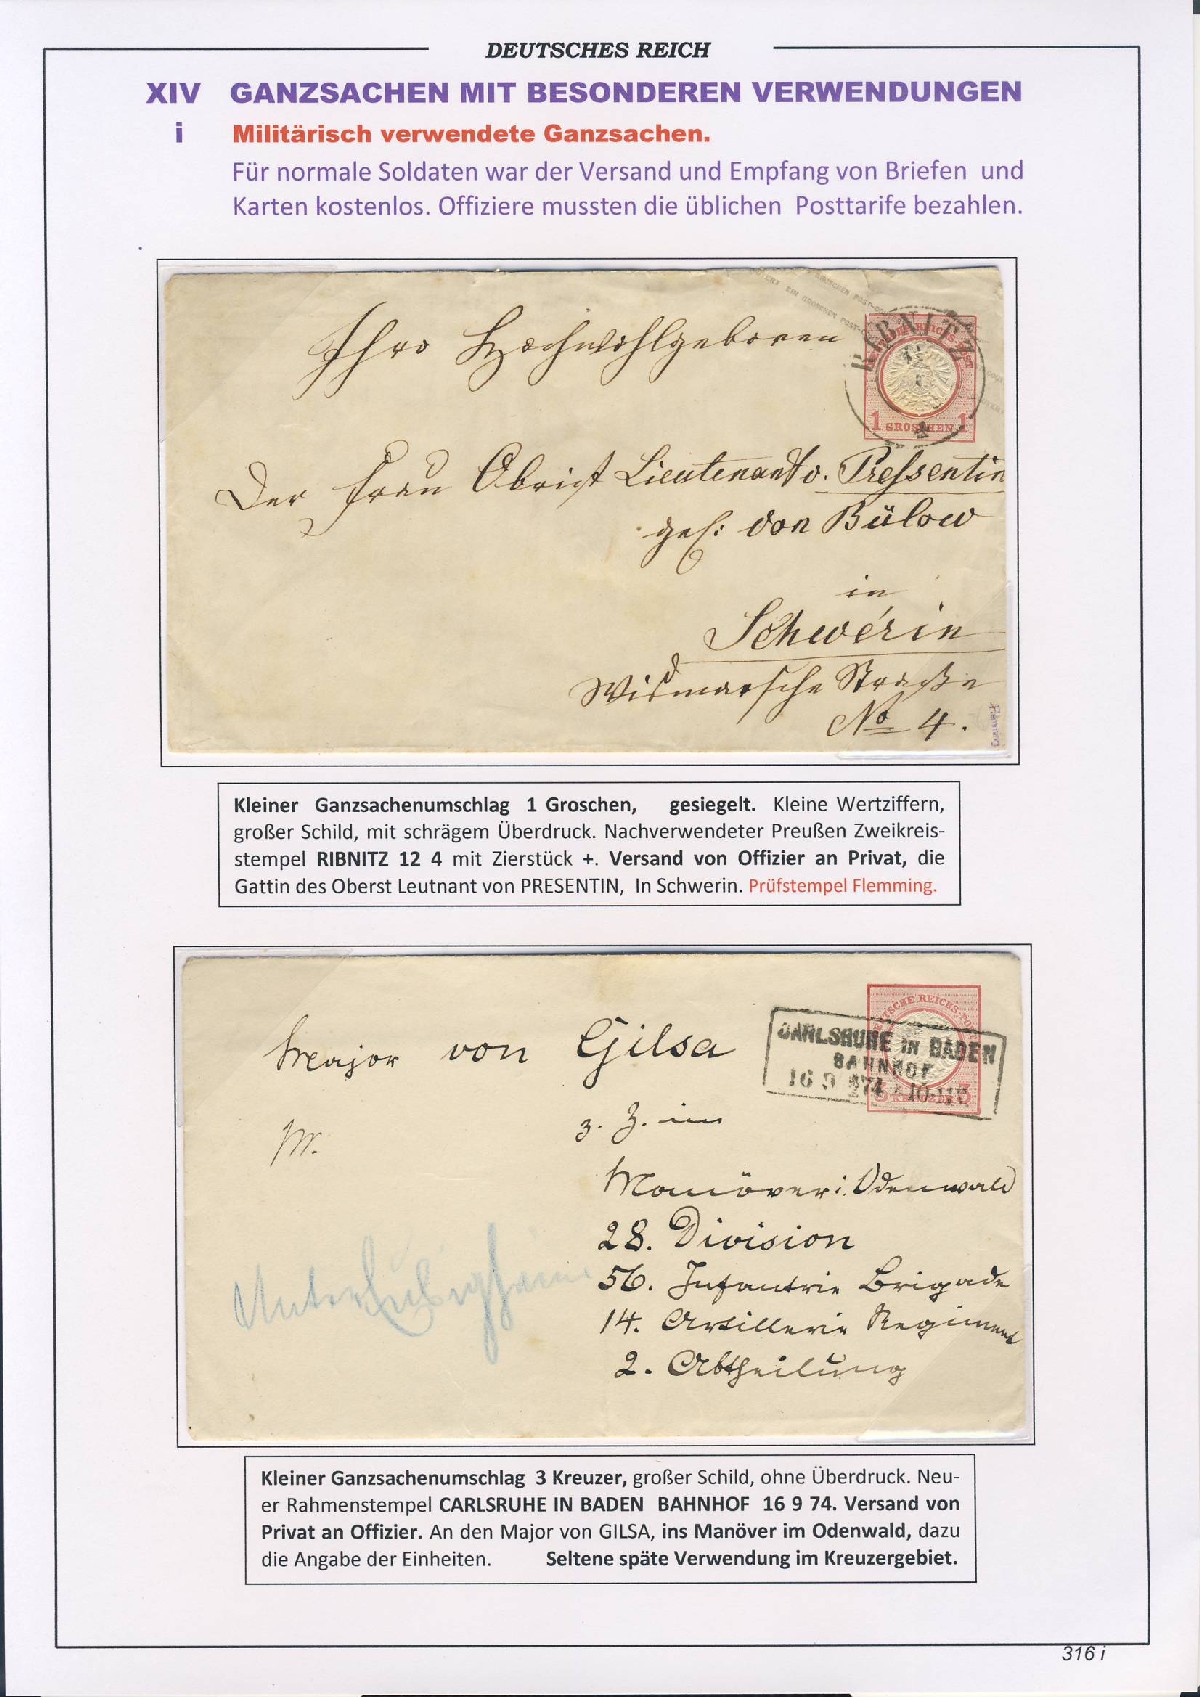 DEUTSCHES REICH
XIV GANZSACHEN MIT BESONDEREN VERWENDUNGEN
i Militärisch verwendete Ganzsachen.
Für normale Soldaten war der Versand und Empfang von Briefen und
Karten kostenlos. Offiziere mussten die üblichen Posttarife bezahlen.
Ihro Hochwohlgeboren
RIBNITZ
1 GROSCHEN 1
Der Frau Obrist Lieutenant v. Pressentin
geb: von Bülow
in
Schwerin
Wismarsche Straße
No 4.
Flemming
Kleiner Ganzsachenumschlag 1 Groschen, gesiegelt. Kleine Wertziffern,
großer Schild, mit schrägem Überdruck. Nachverwendeter Preußen Zweikreis-
stempel RIBNITZ 12 4 mit Zierstück +. Versand von Offizier an Privat, die
Gattin des Oberst Leutnant von PRESENTIN, In Schwerin. Prüfstempel Flemming.
DEUTSCHE REICHS-POST
Major von Gilsa
CARLSRUHE IN BADEN
BAHNHOF
16 9 74
z. Z. im
Manöver i. Odenwald
28. Division
56. Infantrie Brigade
14. Artillerie Regiment
2. Abtheilung
Kleiner Ganzsachenumschlag 3 Kreuzer, großer Schild, ohne Überdruck. Neu-
er Rahmenstempel CARLSRUHE IN BADEN BAHNHOF 16 9 74. Versand von
Privat an Offizier. An den Major von GILSA, ins Manöver im Odenwald, dazu
die Angabe der Einheiten. Seltene späte Verwendung im Kreuzergebiet.
316 i